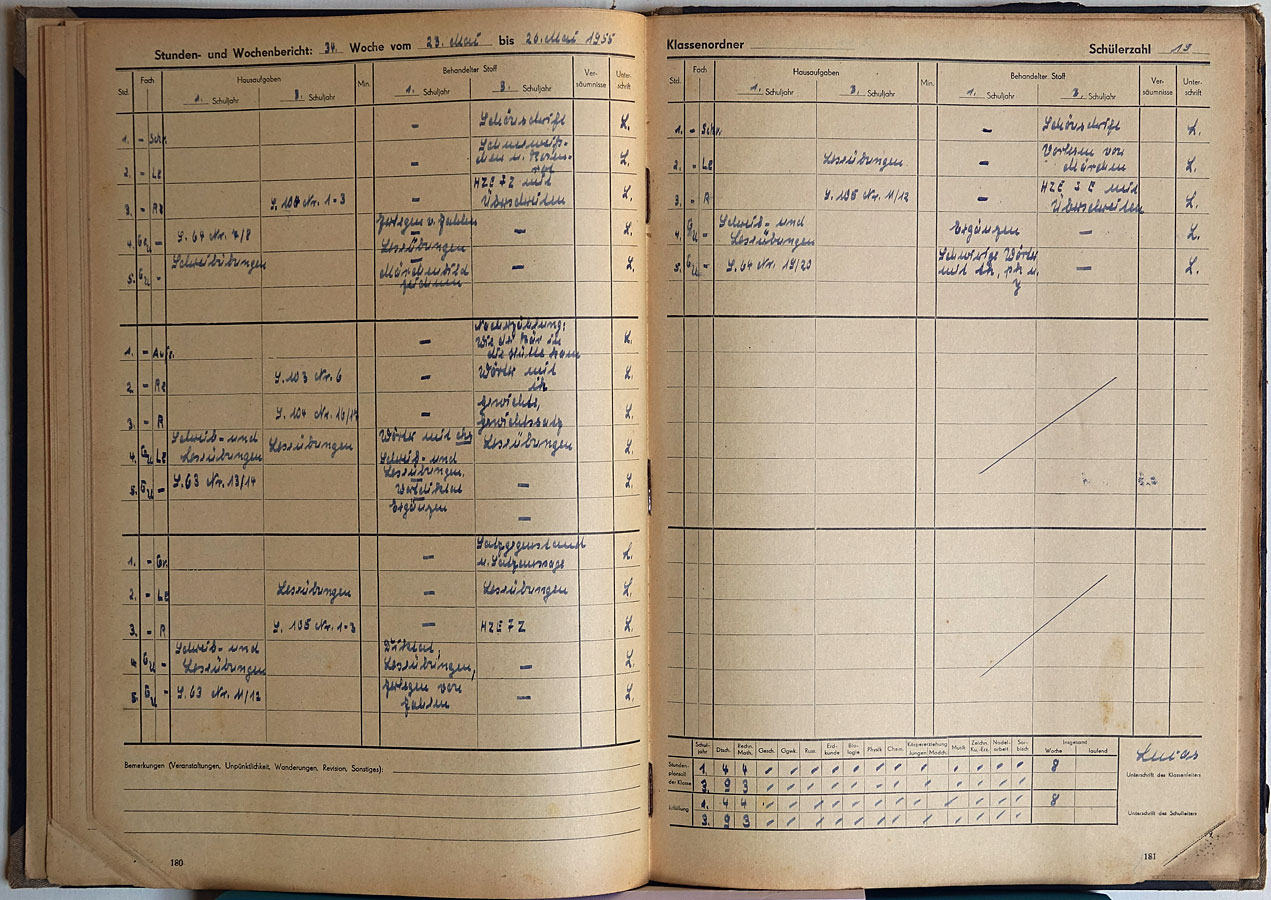 Stunden- und Wochenbericht: 34. Woche vom 23. Mai bis 26. Mai 1955
Std. Fach Hausaufgaben Min. Behandelter Stoff Ver-säumnisse Unter-schrift
1. Schuljahr 3. Schuljahr 1. Schuljahr 3. Schuljahr
1. - Schr. - Schönschrift L.
2. - Le - L.
3. - Rz S. 108 Nr. 1-3 - HZE 7 Z mit Überschreiten L.
4. Gu - S. 64 Nr. 7/8 Zerlegen v. Zahlen - L.
Leseübungen
5. Gu - Schreibübungen Märchenbild zeichnen - L.
1. - Aufs. - Nacherzählung:
Wie der Bär in
die Hütte kam L.
2. - Rz S. 103 Nr. 6 - Wörter mit
ck L.
3. - R S. 104 Nr. 16/17 - Gewichte,
Gewichtssatz L.
4. Gu Le Schreib- und
Leseübungen Leseübungen Wörter mit chs Leseübungen L.
Schreib- und
Leseübungen.
5. Gu - S. 63 Nr. 13/14 - L.
Ergänzen -
1. - Gr. - Satzgegenstand
u. Satzaussage L.
2. - Le Leseübungen - Leseübungen L.
3. - R S. 105 Nr. 1-3 - HZE 7 Z L.
4 Gu - Schreib- und
Leseübungen Diktat,
Leseübungen, - L.
5. Gu - S. 63 Nr. 11/12 Zerlegen von
Zahlen - L.
Bemerkungen (Veranstaltungen, Unpünktlichkeit, Wanderungen, Revision, Sonstiges):
180
Klassenordner Schülerzahl 19
Std. Fach Hausaufgaben Min. Behandelter Stoff Ver-säumnisse Unter-schrift
1. Schuljahr 3. Schuljahr 1. Schuljahr 3. Schuljahr
1. - Schr. - Schönschrift L.
2. - Le Leseübungen - Vorlesen von
Märchen L.
3. - R S. 105 Nr. 11/12 - HZE 3 E mit
Überschreiten L.
4. Gu - Schreib- und
Leseübungen Ergänzen - L.
5. Gu - S. 64 Nr. 19/20 Schwierige Wörter - L.
Schul-jahr Dtsch. Rechn. Math. Gesch. Ggwk. Russ. Erd-kunde Bio-logie Physik Chem. Körpererziehung Jungen Mädch. Musik Zeichn. Ku.-Erz. Nadel-arbeit Sor-bisch Insgesamt Woche laufend
Stunden-plansoll der Klasse 1. 4 4 8
3. 9 3
Erfüllung 1. 4 4 8
3. 9 3
Lucas
Unterschrift des Klassenleiters
Unterschrift des Schulleiters
181